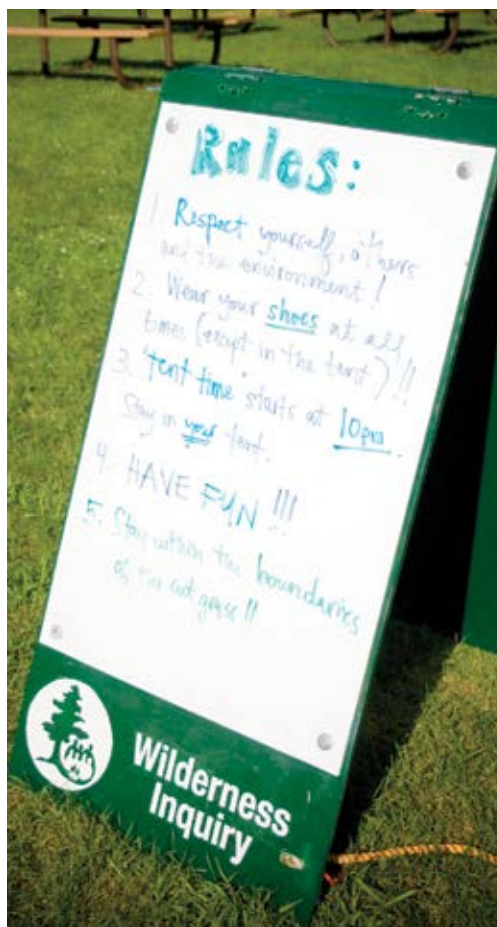 Rules:
1. Respect yourself, others
and the environment!
2. Wear your shoes at all
times (except in the tent)!!
3. "tent time" starts at 10pm.
Stay in your tent.
4. HAVE FUN!!!
5. Stay within the boundaries
of the cut grass!!
Wilderness
Inquiry